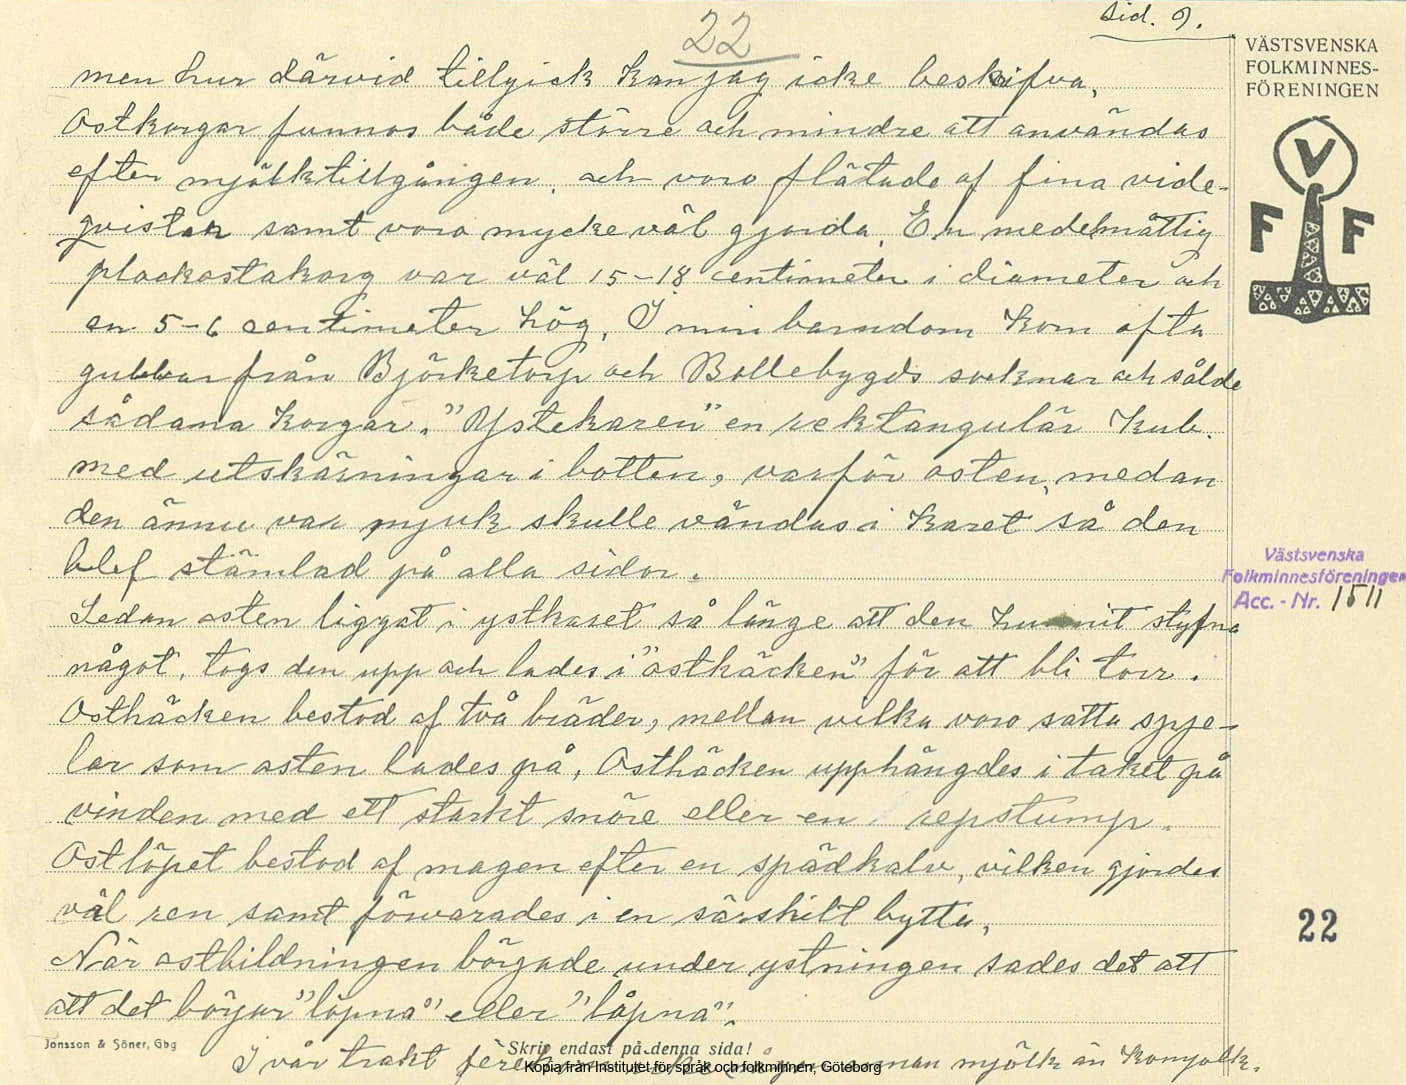 22
Sid. 9.
VÄSTSVENSKA
FOLKMINNES-
FÖRENINGEN
V
F F
men hur därvid tillgick kan jag icke beskrifva,
Ostkorgar funnos både större och mindre att användas
efter mjölktillgången, och voro flätade af fina vide-
qvistar samt voro mycke väl gjorda. En medelmåttig
plockostakorg var väl 15-18 centimeter i diameter och
en 5-6 centimeter hög. I min barndom kom ofta
gubbar från Björketorp och Bollebygds socknar och sålde
sådana korgar. "Ystekaren" en rektangulär kub.
med utskärningar i botten, varför osten, medan
den ännu var mjuk skulle vändas i karet så den
blef stämlad på alla sidor.
Sedan osten liggat i ystkaret så länge att den hunnit styfna
något, togs den upp och lades i "osthäcken" för att bli torr.
Osthäcken bestod af två bräder, mellan vilka voro satta spje-
lar som osten lades på, Osthäcken upphängdes i taket på
vinden med ett starkt snöre eller en repstump.
Ostlöpet bestod af magen efter en spädkalv, vilken gjordes
väl ren samt förvarades i en särskilt bytta,
När ostbildningen började under ystningen sades det att
att det börjar "löpna" eller "låpna".
I vår trakt annan mjölk än komjölk.
Västsvenska
Folkminnesföreningen
Acc. - Nr. 1511
22
Jonsson & Söner, Gbg
Skriv endast på denna sida!
Kopia från Institutet för språk och folkminnen, Göteborg